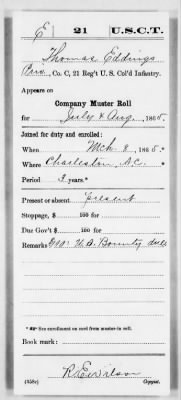 E | 21 | U.S.C.T.
Thomas Eddings
Pvt., Co. C, 21 Reg't U. S. Col'd Infantry.
Appears on
Company Muster Roll
for July & Aug., 1865.
Joined for duty and enrolled:
When Mch. 2, 1865.*
Where Charleston, S.C. *
Period 3 years.*
Present or absent Present
Stoppage, $ 100 for
Due Gov't $ 100 for
Remarks: U.S. Bounty due
* See enrollment on card from muster-in roll.
Book mark:
R E Wilson
(858c) Copyist.